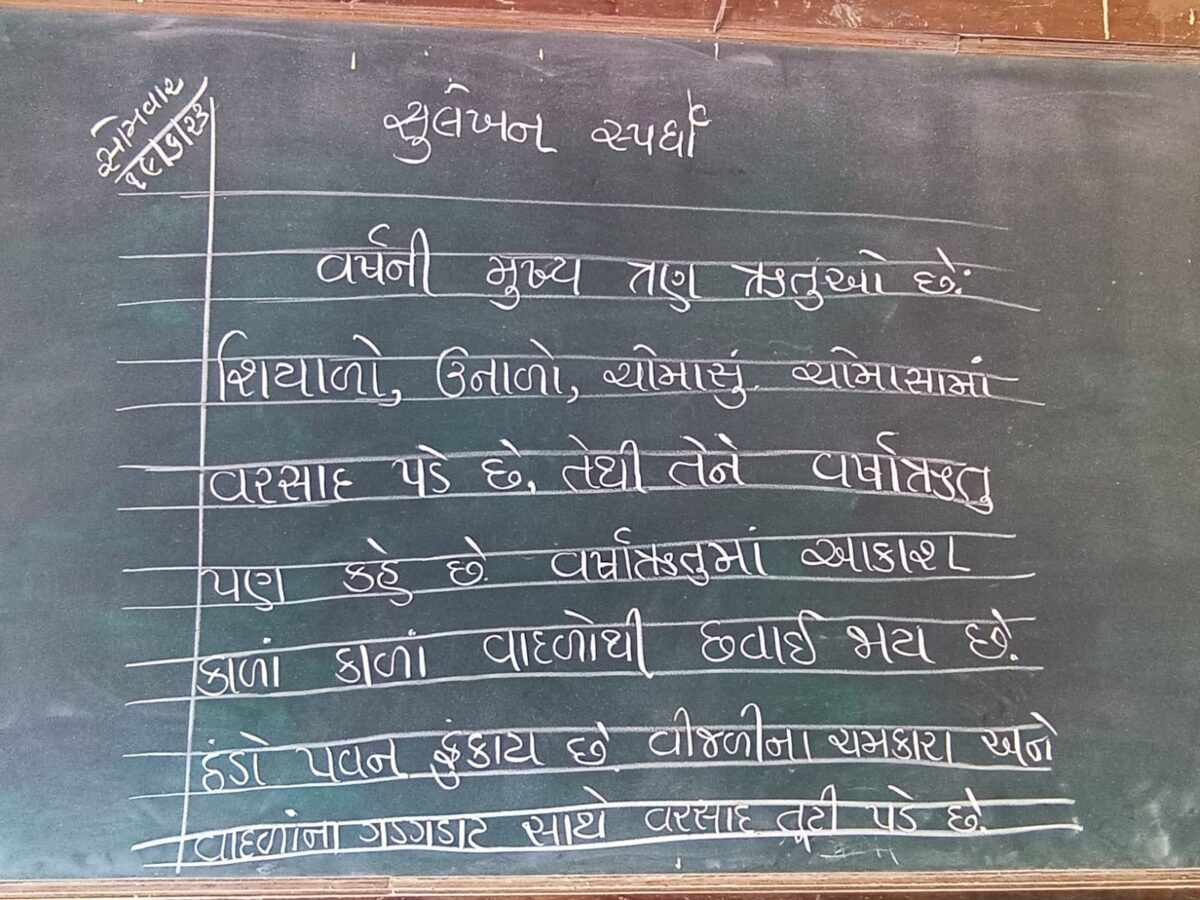 સોમવાર
સુલેખન સ્પર્ધા
વર્ષની મુખ્ય ત્રણ ઋતુઓ છે.
શિયાળો, ઉનાળો, ચોમાસું. ચોમાસામાં
વરસાદ પડે છે, તેથી તેને વર્ષાઋતુ
પણ કહે છે. વર્ષાઋતુમાં આકાશ
કાળાં કાળાં વાદળોથી છવાઈ જાય છે.
ઠંડો પવન ફુંકાય છે વીજળીના ચમકારા અને
વાદળાંના ગડગડાટ સાથે વરસાદ તૂટી પડે છે.